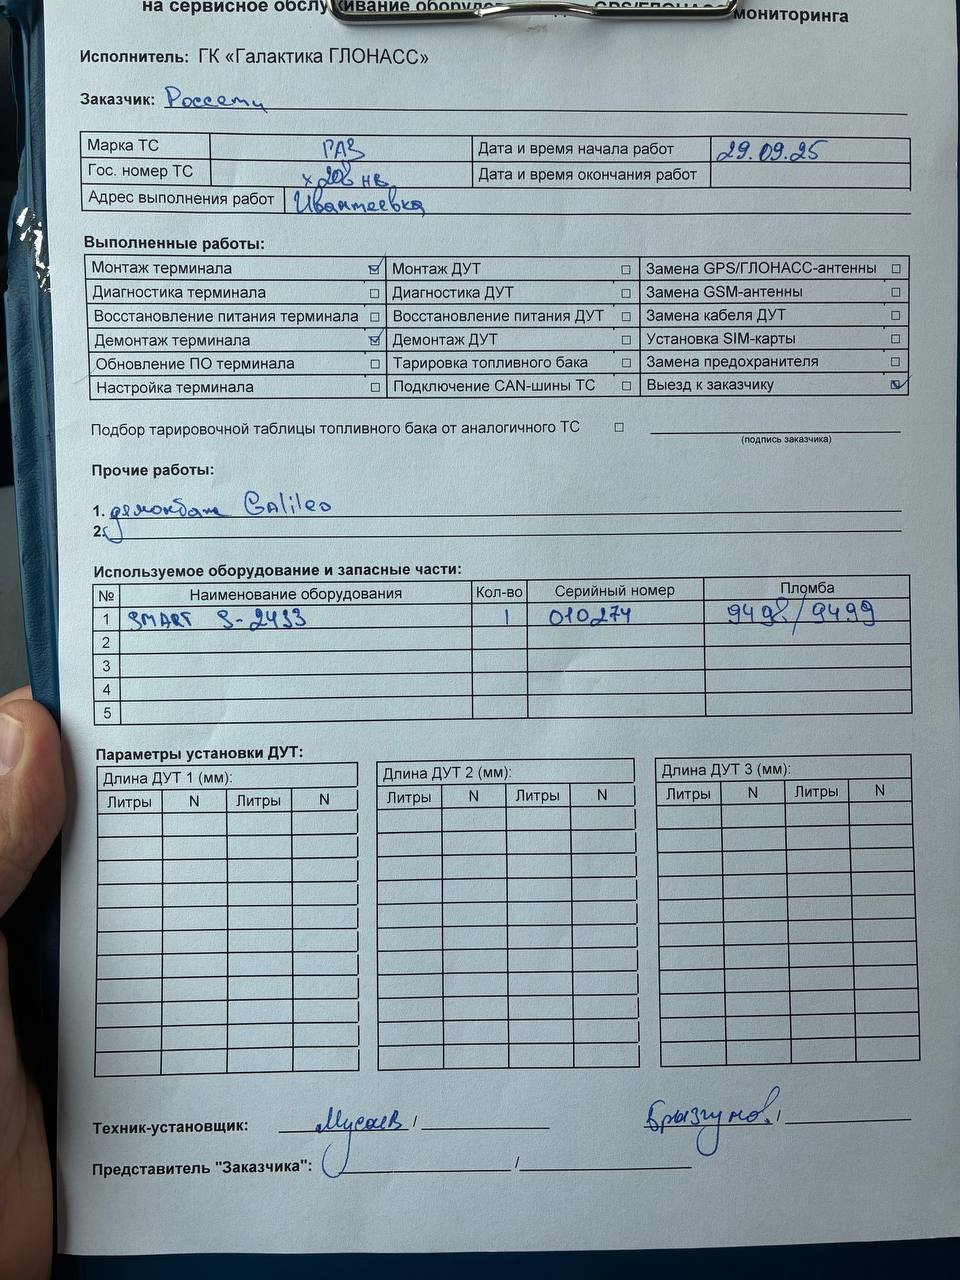 на сервисное обслуживание GPS/ГЛОНАСС мониторинга
Исполнитель: ГК «Галактика ГЛОНАСС»
Заказчик: Россети
Марка ТС ГАЗ Дата и время начала работ 29.09.25
Гос. номер ТС х208нв Дата и время окончания работ
Адрес выполнения работ Ивантеевка
Выполненные работы:
Монтаж терминала ☑ Монтаж ДУТ ☐ Замена GPS/ГЛОНАСС-антенны ☐
Диагностика терминала ☐ Диагностика ДУТ ☐ Замена GSM-антенны ☐
Восстановление питания терминала ☐ Восстановление питания ДУТ ☐ Замена кабеля ДУТ ☐
Демонтаж терминала ☑ Демонтаж ДУТ ☐ Установка SIM-карты ☐
Обновление ПО терминала ☐ Тарировка топливного бака ☐ Замена предохранителя ☐
Настройка терминала ☐ Подключение CAN-шины ТС ☐ Выезд к заказчику ☑
Подбор тарировочной таблицы топливного бака от аналогичного ТС ☐
(подпись заказчика)
Прочие работы:
1. демонтаж Galileo
2.
Используемое оборудование и запасные части:
№ Наименование оборудования Кол-во Серийный номер Пломба
1 SMART S-2433 1 010274 9498/9499
2
3
4
5
Параметры установки ДУТ:
Длина ДУТ 1 (мм): Длина ДУТ 2 (мм): Длина ДУТ 3 (мм):
Литры N Литры N Литры N Литры N Литры N Литры N
Техник-установщик: Мусаев / Брызгунов /
Представитель "Заказчика": /